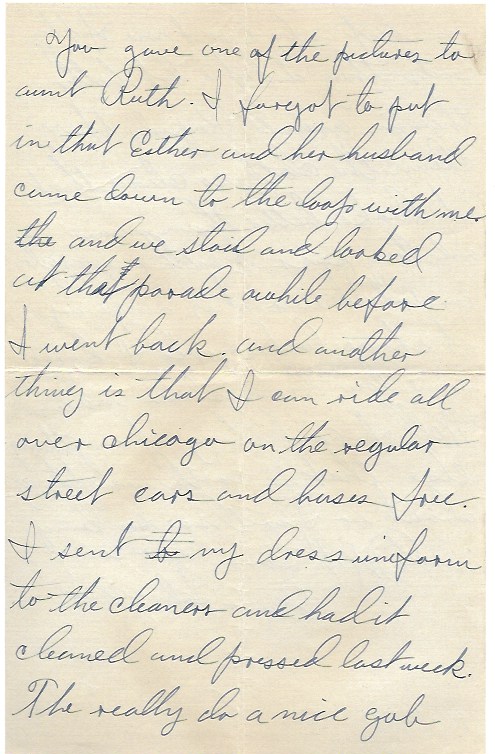 You gave one of the pictures to
aunt Ruth. I forgot to put
in that Esther and her husband
came down to the loop with me.
the and we staid and looked
at that parade awhile before
I went back. and another
thing is that I can ride all
over chicago on the regular
street cars and buses free.
I sent to my dress uniform
to the cleaners and had it
cleaned and pressed last week.
The really do a nice gob